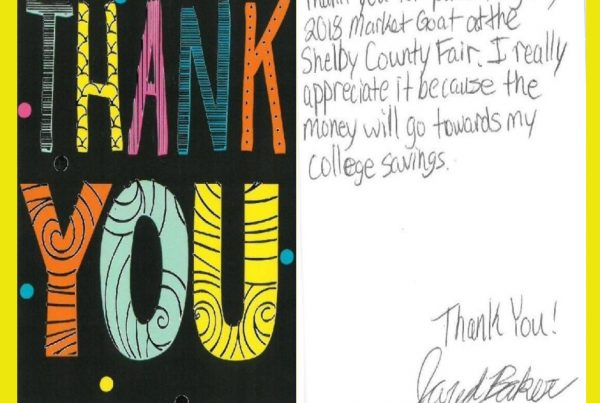 THANK
YOU
Thank you for
2018 Market Goat at the
Shelby County Fair. I really
appreciate it because the
money will go towards my
college savings.
Thank You!
Jared Baker